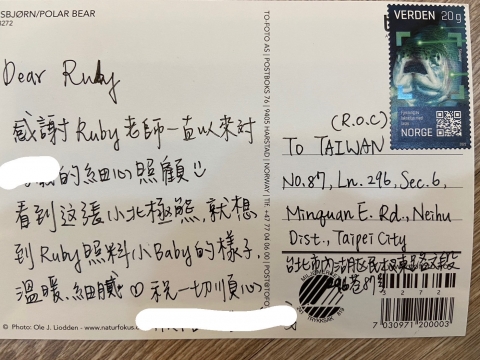 SBJØRN/POLAR BEAR
3272
Dear Ruby
感謝Ruby老師一直以來对
的細心照顧
看到这張小北極熊,就想
到Ruby照料小Baby的樣子.
溫暖、細膩♡祝一切順心
© Photo: Ole J. Liodden - www.naturfokus.
TO-FOTO AS | POSTBOKS 76 | 9405 HARSTAD | NORWAY | Tlf. +47 77 04 06 00 |
VERDEN 20g
NORGE
(R.O.C)
To TAIWAN
No.87, Ln. 296, Sec. 6,
Minquan E. Rd., Neihu
Dist., Taipei City
台北市內湖区民权東路六段
296巷87号
TRYKKSAK
3272
7 030971 200003